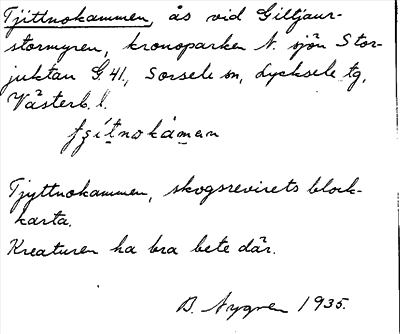 Tjittnokammen, ås vid Gilltjaur-
stormyren, kronoparken N. sjön Stor-
juktan G. 41, Sorsele sn, Lycksele tg,
Västerb. l.
Tjyttnokammen, skogsrevirets block-
karta.
Kreaturen ha bra bete där.
B. Nygren 1935.